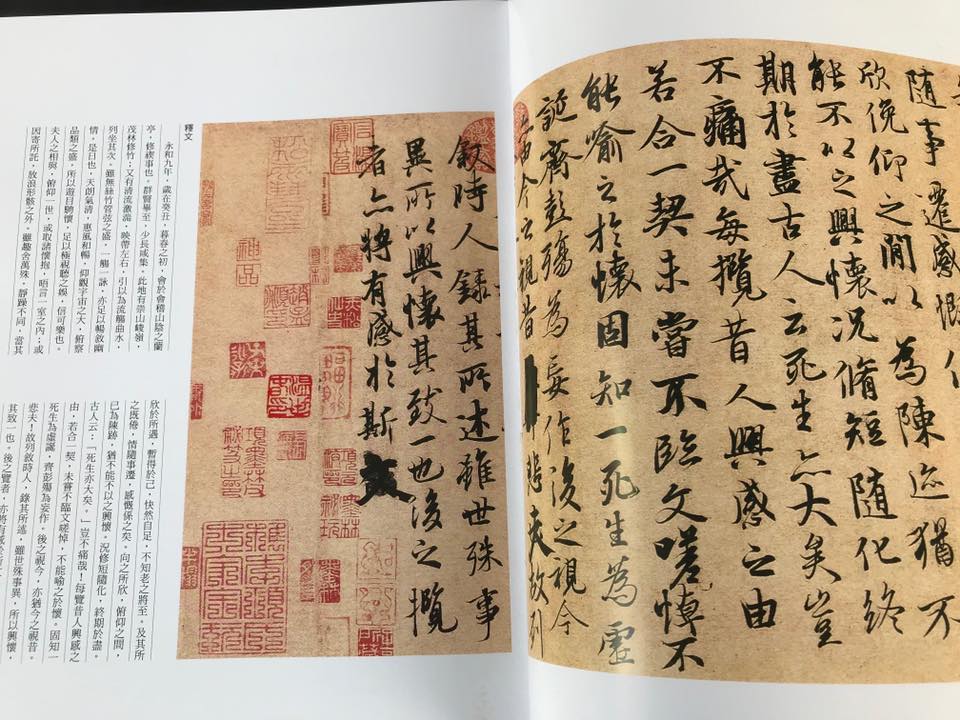 隨事遷感慨
欣俛仰之閒以為陳迹猶不
能不以之興懷況脩短隨化終
期於盡古人云死生亦大矣豈
不痛哉每攬昔人興感之由
若合一契未嘗不臨文嗟悼不
能喻之於懷固知一死生為虛
誕齊彭殤為妄作後之視今
亦由今之視昔悲夫故列
敘時人錄其所述雖世殊事
異所以興懷其致一也後之攬
者亦將有感於斯文
神品
釋文
永和九年，歲在癸丑，暮春之初，會於會稽山陰之蘭
亭，修禊事也。群賢畢至，少長咸集。此地有崇山峻嶺，
茂林修竹；又有清流激湍，映帶左右，引以為流觴曲水，
列坐其次。雖無絲竹管弦之盛，一觴一詠，亦足以暢敘幽
情。是日也，天朗氣清，惠風和暢，仰觀宇宙之大，俯察
品類之盛，所以遊目騁懷，足以極視聽之娛，信可樂也。
夫人之相與，俯仰一世，或取諸懷抱，晤言一室之內；或
因寄所託，放浪形骸之外。雖趣舍萬殊，靜躁不同，當其
欣於所遇，暫得於己，快然自足，不知老之將至。及其所
之既倦，情隨事遷，感慨係之矣。向之所欣，俯仰之間，
已為陳跡，猶不能不以之興懷。況修短隨化，終期於盡。
古人云：「死生亦大矣。」豈不痛哉！每覽昔人興感之
由，若合一契，未嘗不臨文嗟悼，不能喻之於懷。固知一
死生為虛誕，齊彭殤為妄作。後之視今，亦猶今之視昔。
悲夫！故列敘時人，錄其所述，雖世殊事異，所以興懷，
其致一也。後之覽者，亦將有感於斯文